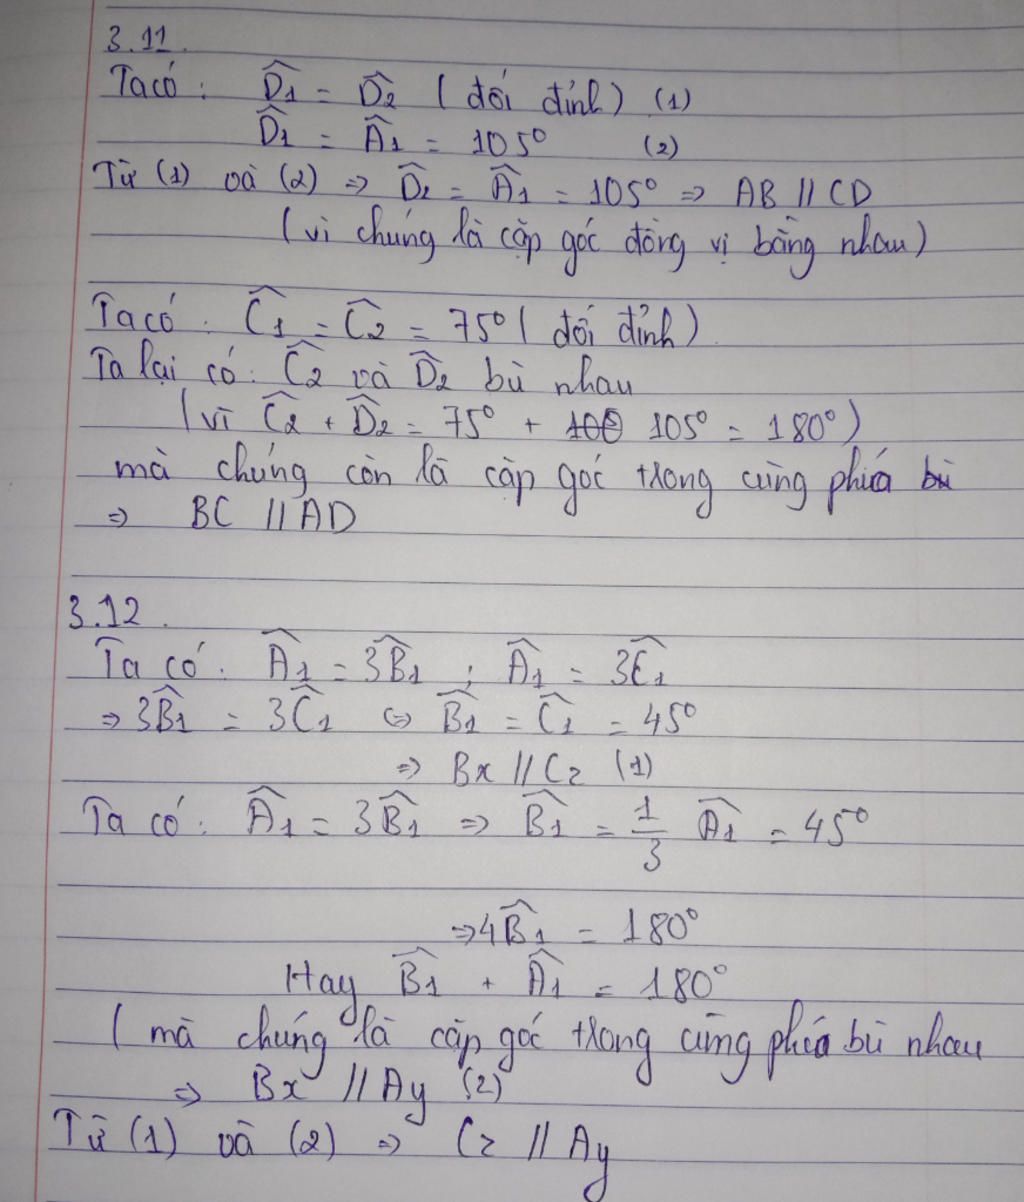 3.11.
Ta có: D̂1 = D̂2 (đối đỉnh) (1)
D̂1 = Â1 = 105° (2)
Từ (1) và (2) => D̂2 = Â1 = 105° => AB // CD
(vì chúng là cặp góc đồng vị bằng nhau)
Ta có: Ĉ1 = Ĉ2 = 75° (đối đỉnh).
Ta lại có: Ĉ2 và D̂2 bù nhau
(vì Ĉ2 + D̂2 = 75° + 105° = 180°)
mà chúng còn là cặp góc trong cùng phía bù
=> BC // AD
3.12.
Ta có: Â1 = 3B̂1 ; Â1 = 3Ĉ1
=> 3B̂1 = 3Ĉ1 <=> B̂1 = Ĉ1 = 45°
=> Bx // Cz (1)
Ta có: Â1 = 3B̂1 => B̂1 = 1/3 Â1 = 45°
=> 4B̂1 = 180°
Hay B̂1 + Â1 = 180°
(mà chúng là cặp góc trong cùng phía bù nhau
=> Bx // Ay (2)
Từ (1) và (2) => Cz // Ay